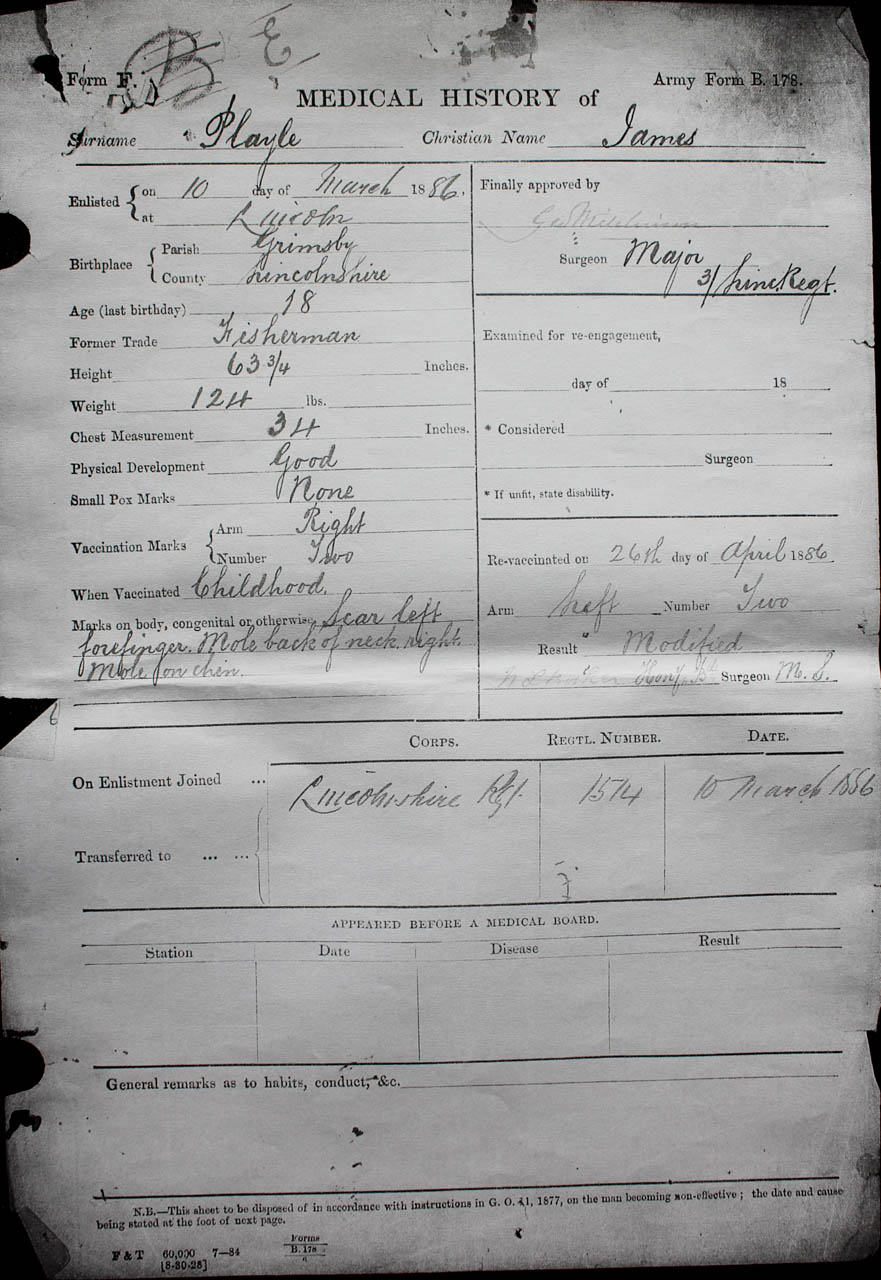 E
B
Form F. Army Form B. 178.
MEDICAL HISTORY of
Surname Playle Christian Name James
Enlisted { on 10 day of March 1886.
at Lincoln
Birthplace { Parish Grimsby
County Lincolnshire
Age (last birthday) 18
Former Trade Fisherman
Height 63 3/4 Inches.
Weight 124 lbs.
Chest Measurement 34 Inches.
Physical Development Good
Small Pox Marks None
Vaccination Marks { Arm Right
Number Two
When Vaccinated Childhood.
Marks on body, congenital or otherwise Scar left
forefinger. Mole back of neck, right.
Mole on chin.
Finally approved by
Surgeon Major
3/Linc Regt.
Examined for re-engagement,
day of 18
* Considered
Surgeon
* If unfit, state disability.
Re-vaccinated on 26th day of April 1886
Arm Left Number Two
Result Modified
Surgeon M. S.
6
CORPS. REGTL. NUMBER. DATE.
On Enlistment Joined ... Lincolnshire Rgt. 1514 10 March 1886
Transferred to ... ...
APPEARED BEFORE A MEDICAL BOARD.
Station Date Disease Result
General remarks as to habits, conduct, &c.
N.B.—This sheet to be disposed of in accordance with instructions in G. O. 41, 1877, on the man becoming non-effective; the date and cause
being stated at the foot of next page.
F & T 60,000 7—84 Forms
[8-30-28] B. 178